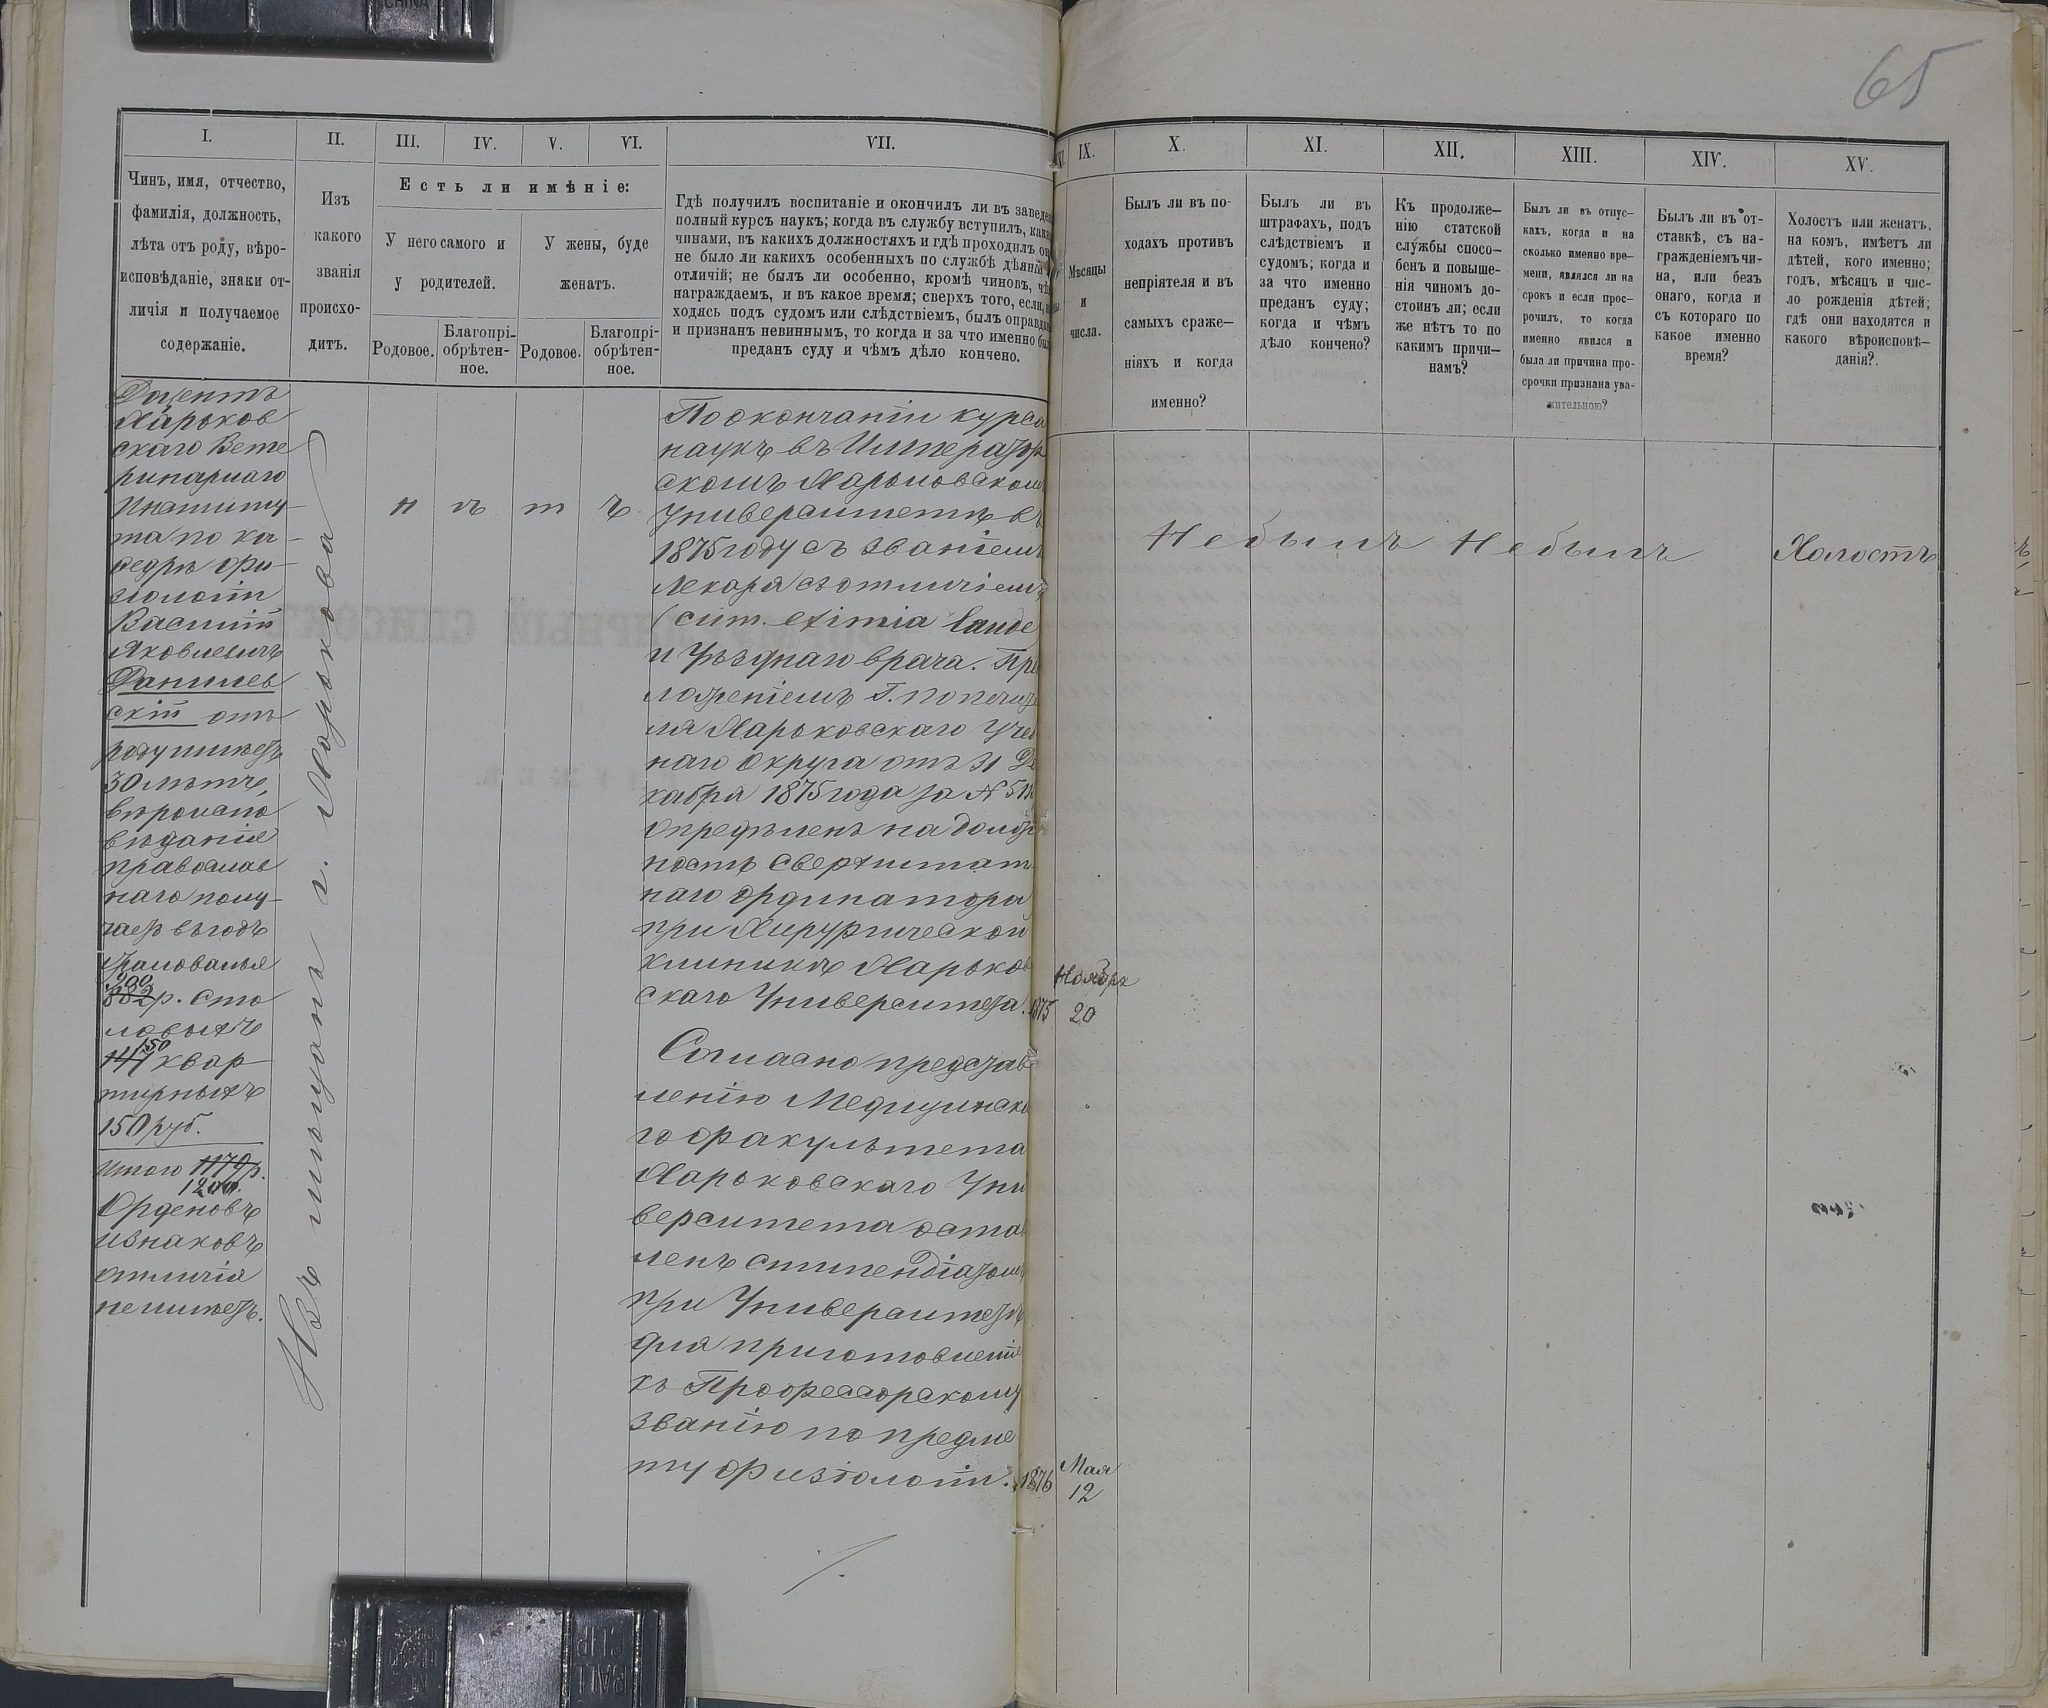 65
I.
II.
III.
IV.
V.
VI.
VII.
IX.
X.
XI.
XII.
XIII.
XIV.
XV.
Чинъ, имя, отчество,
фамилія, должность,
лѣта отъ роду, вѣро-
исповѣданіе, знаки от-
личія и получаемое
содержаніе.
Изъ
какого
званія
происхо-
дитъ.
Есть ли имѣніе:
У него самого и
у родителей.
У жены, буде
женатъ.
Родовое.
Благопрі-
обрѣтен-
ное.
Родовое.
Благопрі-
обрѣтен-
ное.
Гдѣ получилъ воспитаніе и окончилъ ли въ заведен
полный курсъ наукъ; когда въ службу вступилъ, каки
чинами, въ какихъ должностяхъ и гдѣ проходилъ он
не было ли какихъ особенныхъ по службѣ дѣяній
отличій; не былъ ли особенно, кромѣ чиновъ, чѣ
награждаемъ, и въ какое время; сверхъ того, если,
ходясь подъ судомъ или слѣдствіемъ, былъ оправда
и признанъ невиннымъ, то когда и за что именно бы
преданъ суду и чѣмъ дѣло кончено.
Мѣсяцы
и
числа.
Былъ ли въ по-
ходахъ противъ
непріятеля и въ
самыхъ сраже-
ніяхъ и когда
именно?
Былъ ли въ
штрафахъ, подъ
слѣдствіемъ и
судомъ; когда и
за что именно
преданъ суду;
когда и чѣмъ
дѣло кончено?
Къ продолже-
нію статской
службы спосо-
бенъ и повыше-
нія чиномъ до-
стоинъ ли; если
же нѣтъ то по
какимъ причи-
намъ?
Былъ ли въ отпус-
кахъ, когда и на
сколько именно вре-
мени, являлся ли на
срокъ и если прос-
рочилъ, то когда
именно явился и
была ли причина про-
срочки признана ува-
жительною?
Былъ ли въ от-
ставкѣ, съ на-
гражденіемъ чи-
на, или безъ
онаго, когда и
съ котораго по
какое именно
время?
Холостъ или женатъ,
на комъ, имѣетъ ли
дѣтей, кого именно;
годъ, мѣсяцъ и чис-
ло рожденія дѣтей;
гдѣ они находятся и
какого вѣроисповѣ-
данія?
Доцентъ
Харьков
скаго Вете
ринарнаго
Институ-
та по ка-
федрѣ фи-
зіологіи
Василій
Яковлевичъ
Данилев
скій отъ
роду имѣетъ
30 лѣтъ,
вѣроиспо
вѣданія
православ
наго полу-
чаетъ въ годъ
жалованья
900
882 р. сто
ловыхъ
150
147 квар
тирныхъ
150 руб.
Итого 1179 р.
1200.
Орденовъ
и знаковъ
отличія
не имѣетъ.
Изъ мѣщанъ г. Харькова
н ѣ т ъ
По окончаніи курса
наукъ въ Император
скомъ Харьковском
Университетѣ въ
1875 году съ званіемъ
Лекаря съ отличіемъ
(cum eximia laude
и Уѣзднаго врача. Пред
ложеніемъ Г. Попечите
ля Харьковскаго Учеб
наго Округа отъ 31 Де
кабря 1875 года за №
опредѣленъ на долж
ность сверхштат
наго ординатора
при Хирургической
клиникѣ Харьков
скаго Университета. 1875
Ноября
20
Согласно представ
ленію Медицинска
го факультета
Харьковскаго Уни
верситета остав
ленъ стипендіатомъ
при Университетѣ
для приготовленія
къ Профессорскому
званію по предме
ту физіологіи. 1876
Мая
12
Не былъ
Не былъ
Холостъ